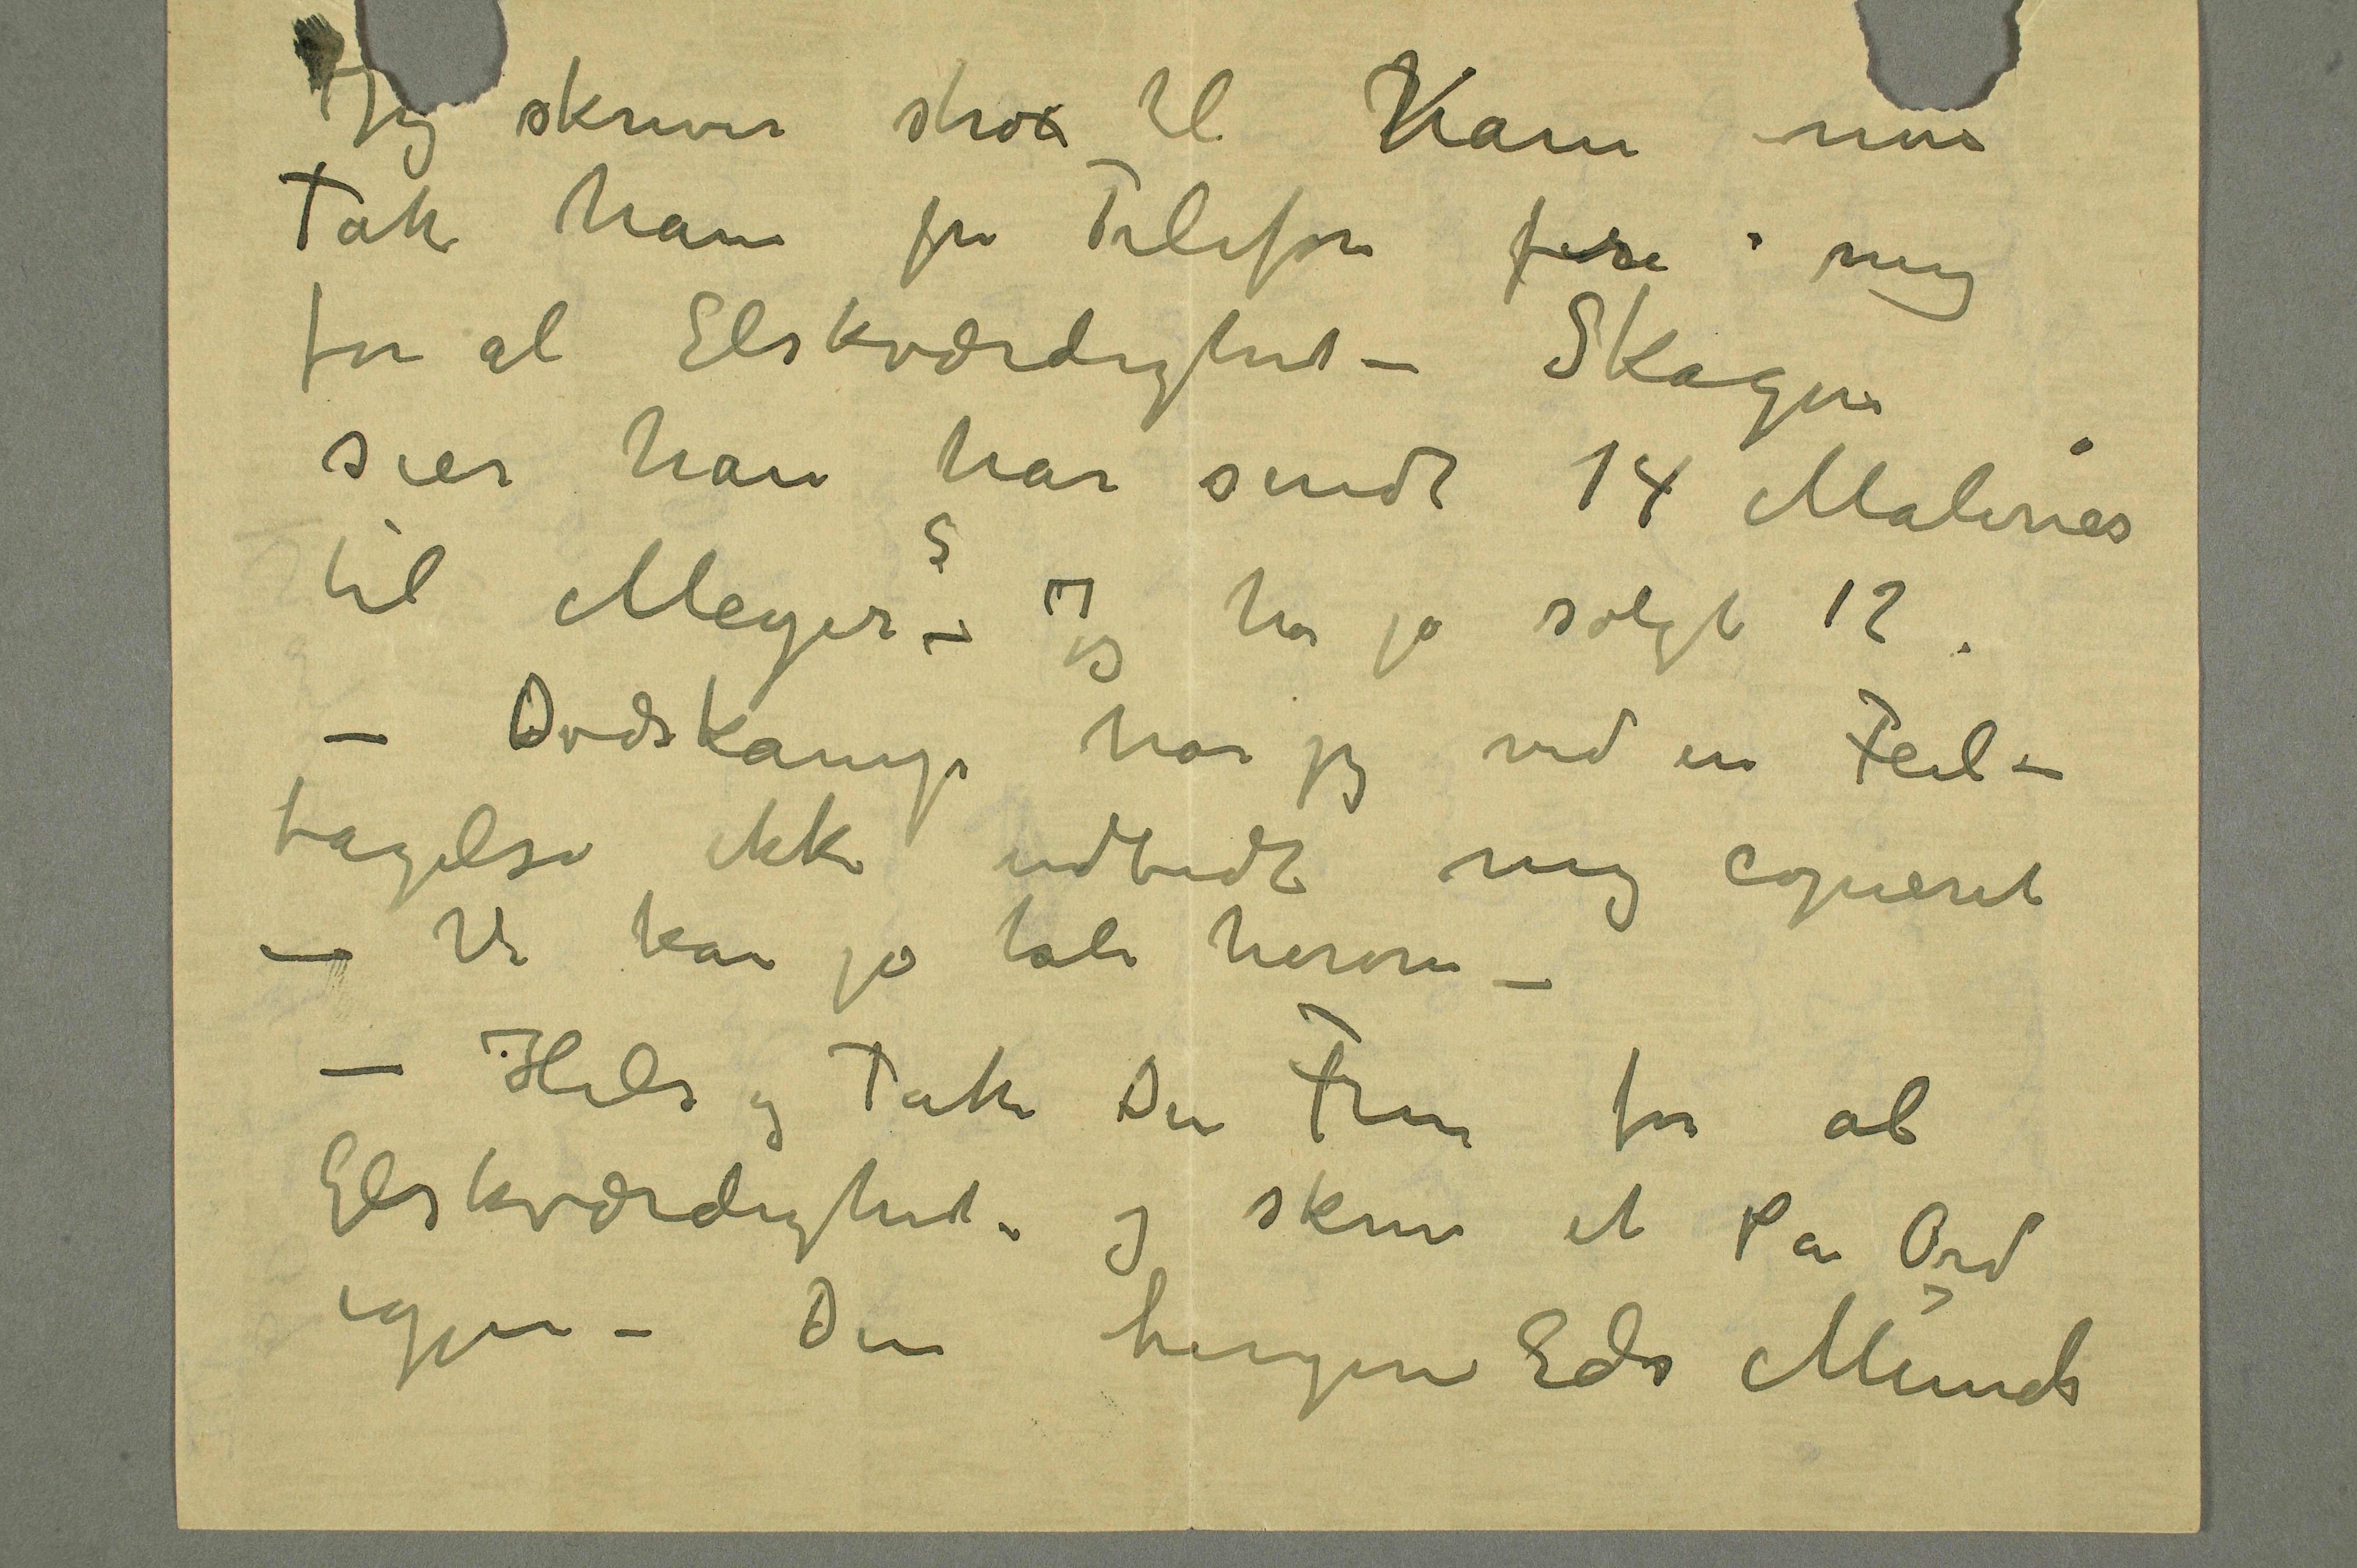 Jeg skriver strax til Ham men
Tak ham pr Telefon fra mig
for al Elskværdighed – Skagen
sier han har sendt 14 Malerier
til Meyer – Jeg har jo solgt 12.
– Dødskamp har jeg ved en Feil-
tagelse ikke udbedt mig copieret
– Vi kan jo tale herom –
– Hils og Tak Din Frue for al
Elskværdighed. og skriv et Par Ord
igjen – Din hengivne Edv Munch